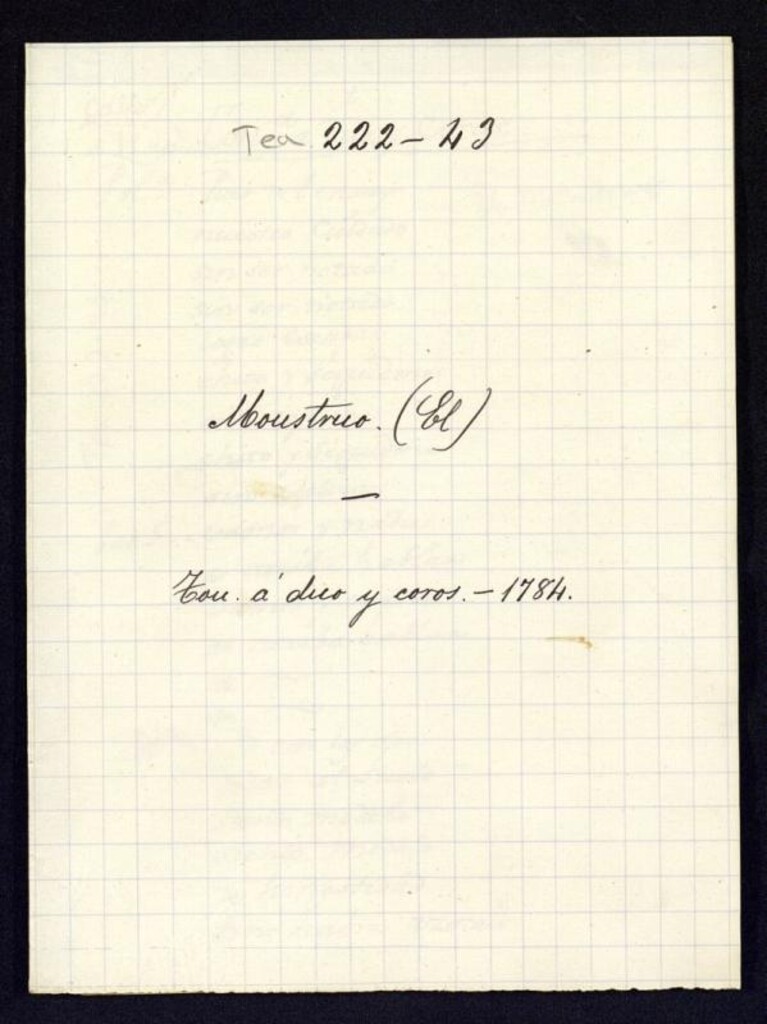 Tea 222-43
Moustruo. (El)
—
Ton. á duo y coros. - 1784.